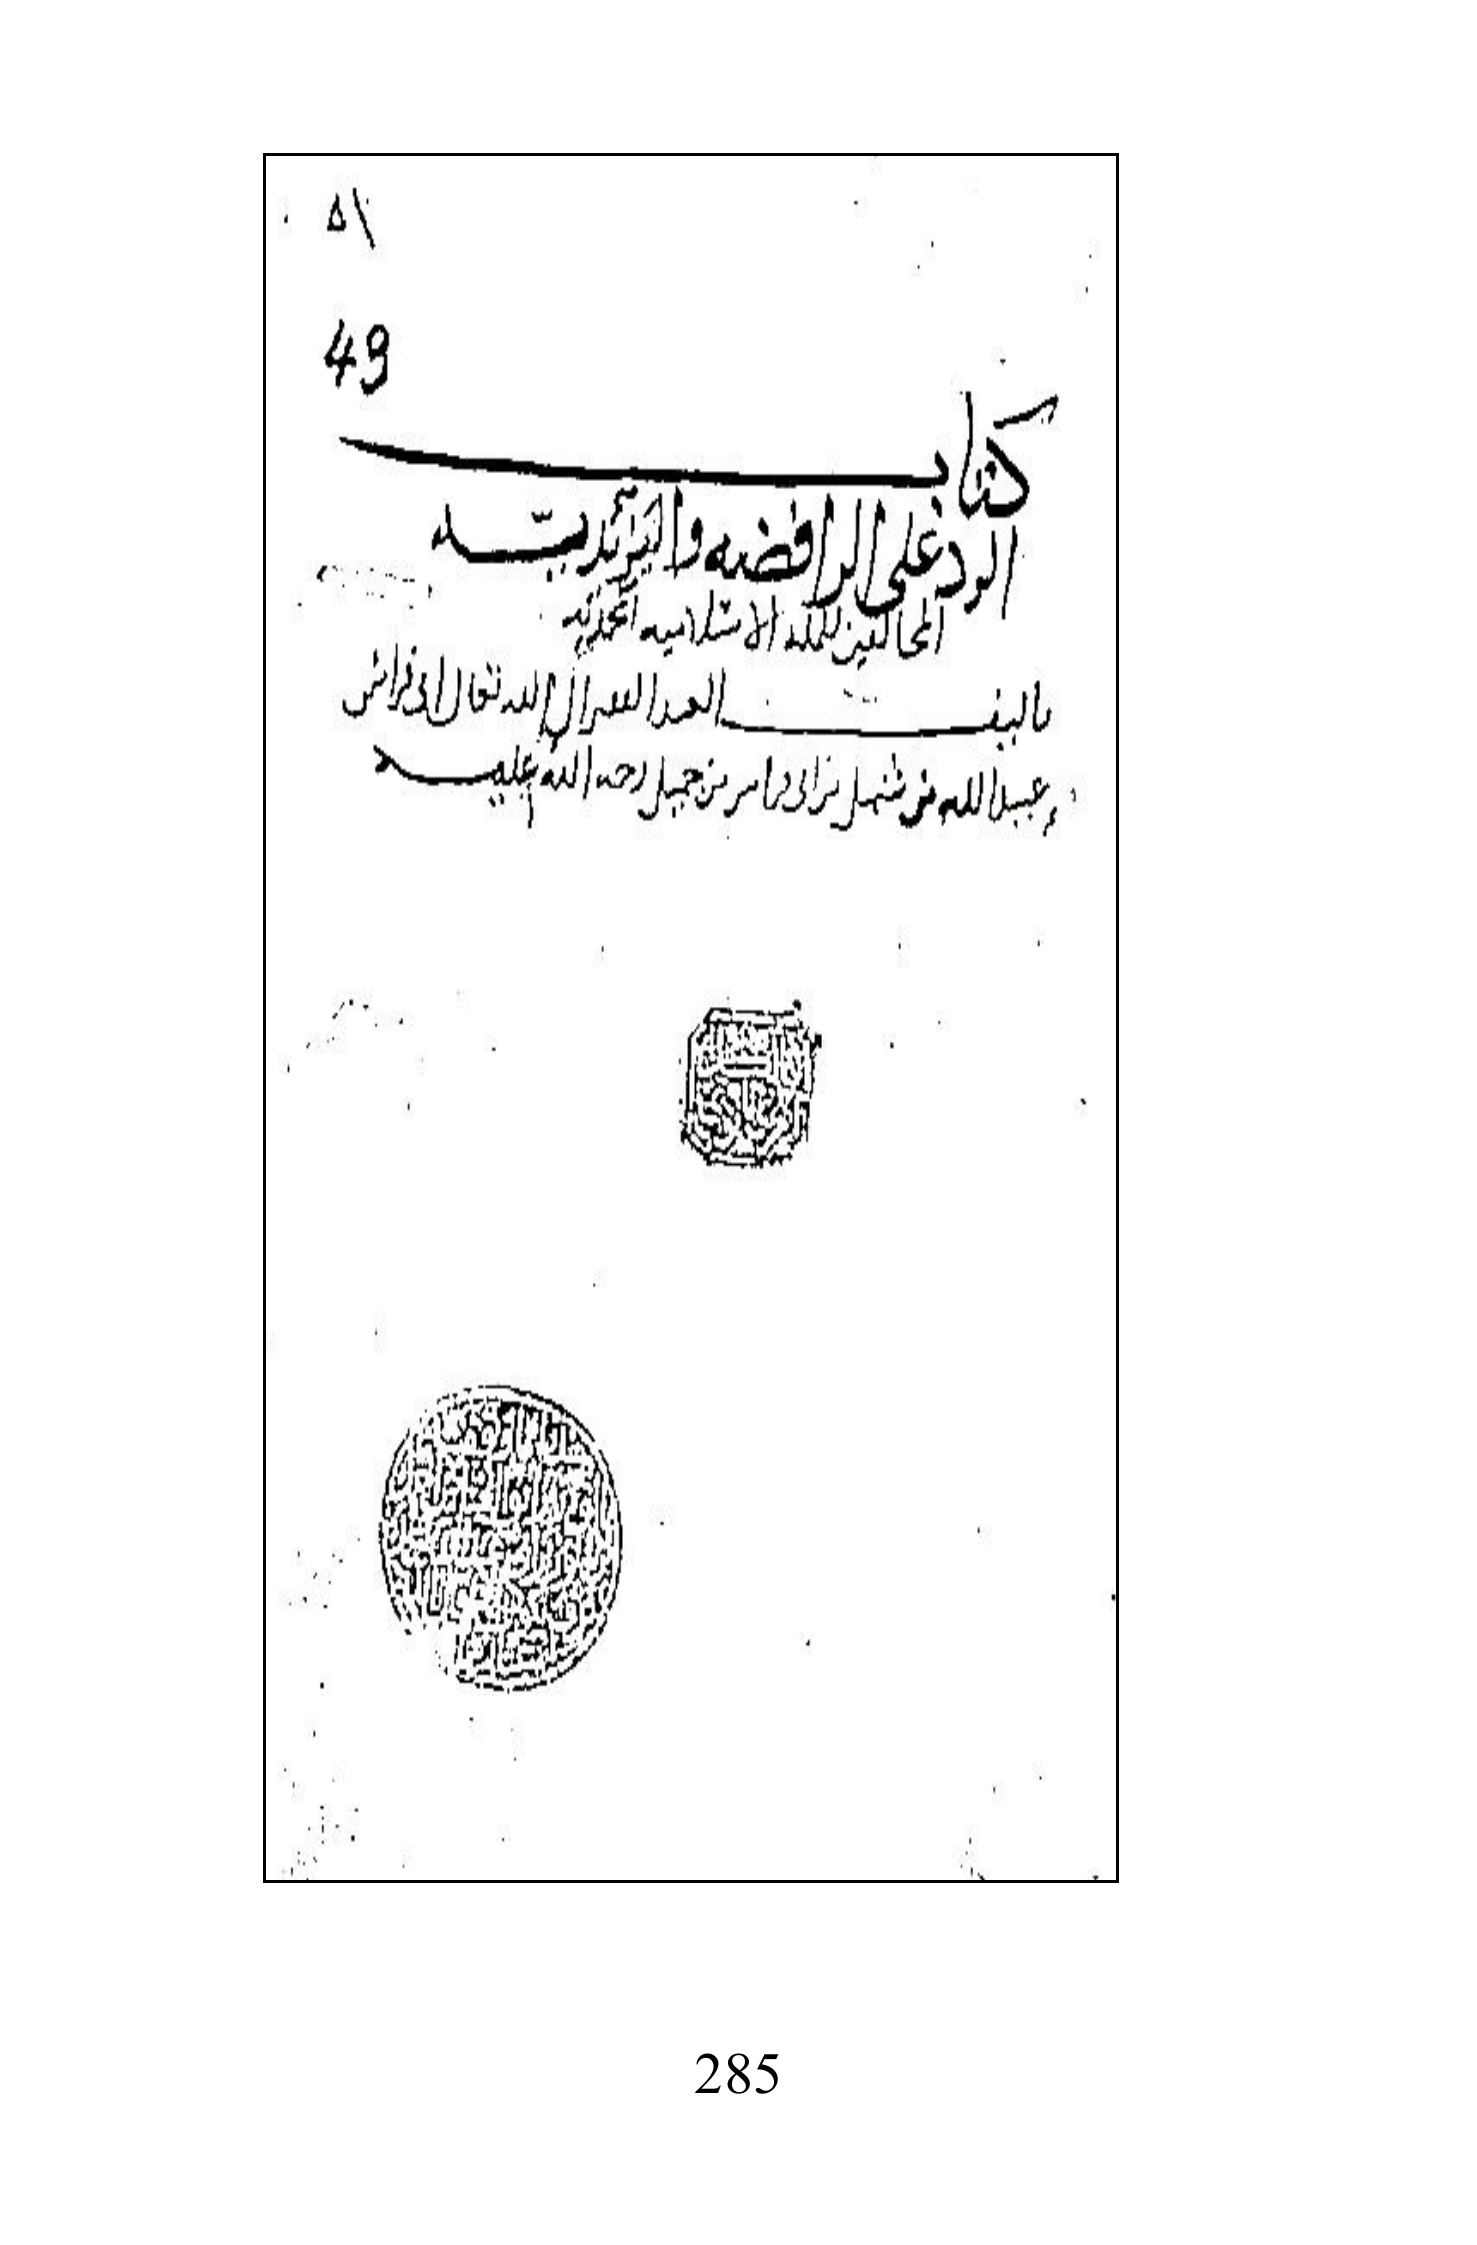 ٥١
49
كتاب
الرد على الرافضه واليزيديه
المخالفين للمله الاسلاميه المحمديه
تاليف العبد الفقير الى الله تعالى ابى فراس
عبيد الله بن شبل بن ابى فراس بن جميل رحمه الله عليه
285